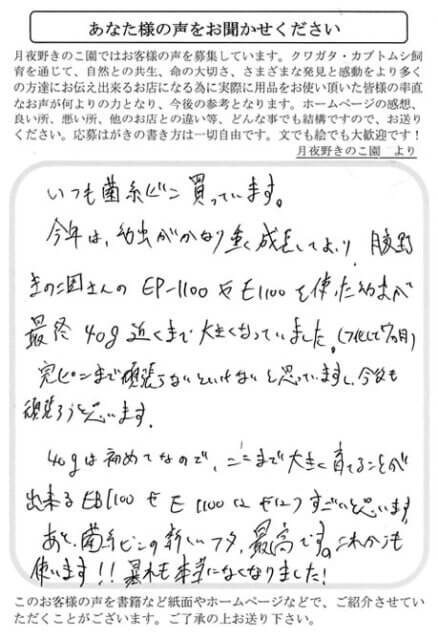 あなた様の声をお聞かせください
月夜野きのこ園ではお客様の声を募集しています。クワガタ・カブトムシ飼
育を通じて、自然との共生、命の大切さ、さまざまな発見と感動をより多く
の方達にお伝え出来るお店になる為に実際に用品をお使い頂いた皆様の率直
なお声が何よりの力となり、今後の参考となります。ホームページの感想、
良い所、悪い所、他のお店との違い等、どんな事でも結構ですので、お送り
ください。応募はがきの書き方は一切自由です。文でも絵でも大歓迎です！
月夜野きのこ園 より
いつも菌糸ビン買っています。
今年は、幼虫がかなり重く成長しており、月夜野
きのこ園さんの EP-1100 や E1100 を使った幼虫が
最終 40g 近くまで大きくなっていました。(フ化して7ヵ月)
完ピンまで頑張らないといけないと思っていますし、今後も
頑張ろうと思います。
40gは初めてなので、ここまで大きく育てることが
出来る EB1100 や E1100 は すごいと思います
あと、菌糸ビンの新しいフタ、最高です。これからも
使います!! 暴れも本当になくなりました!
このお客様の声を書籍など紙面やホームページなどで、ご紹介させてい
ただくことがございます。ご了承の上お送り下さい。